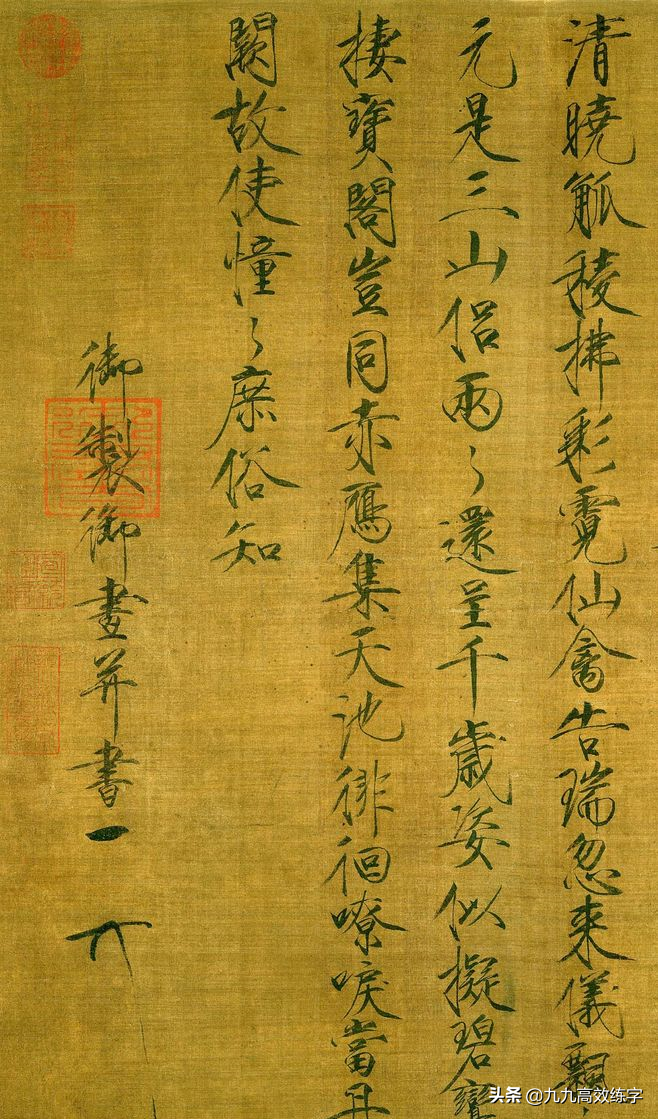 清曉觚稜拂彩霓仙禽告瑞忽来儀飄
元是三山侣兩〻還呈千歲姿似擬碧鸞
棲寶閣豈同赤鴈集天池徘徊嘹唳當丹
闕故使憧〻庶俗知
御製御畫并書
头条 @九九高效练字